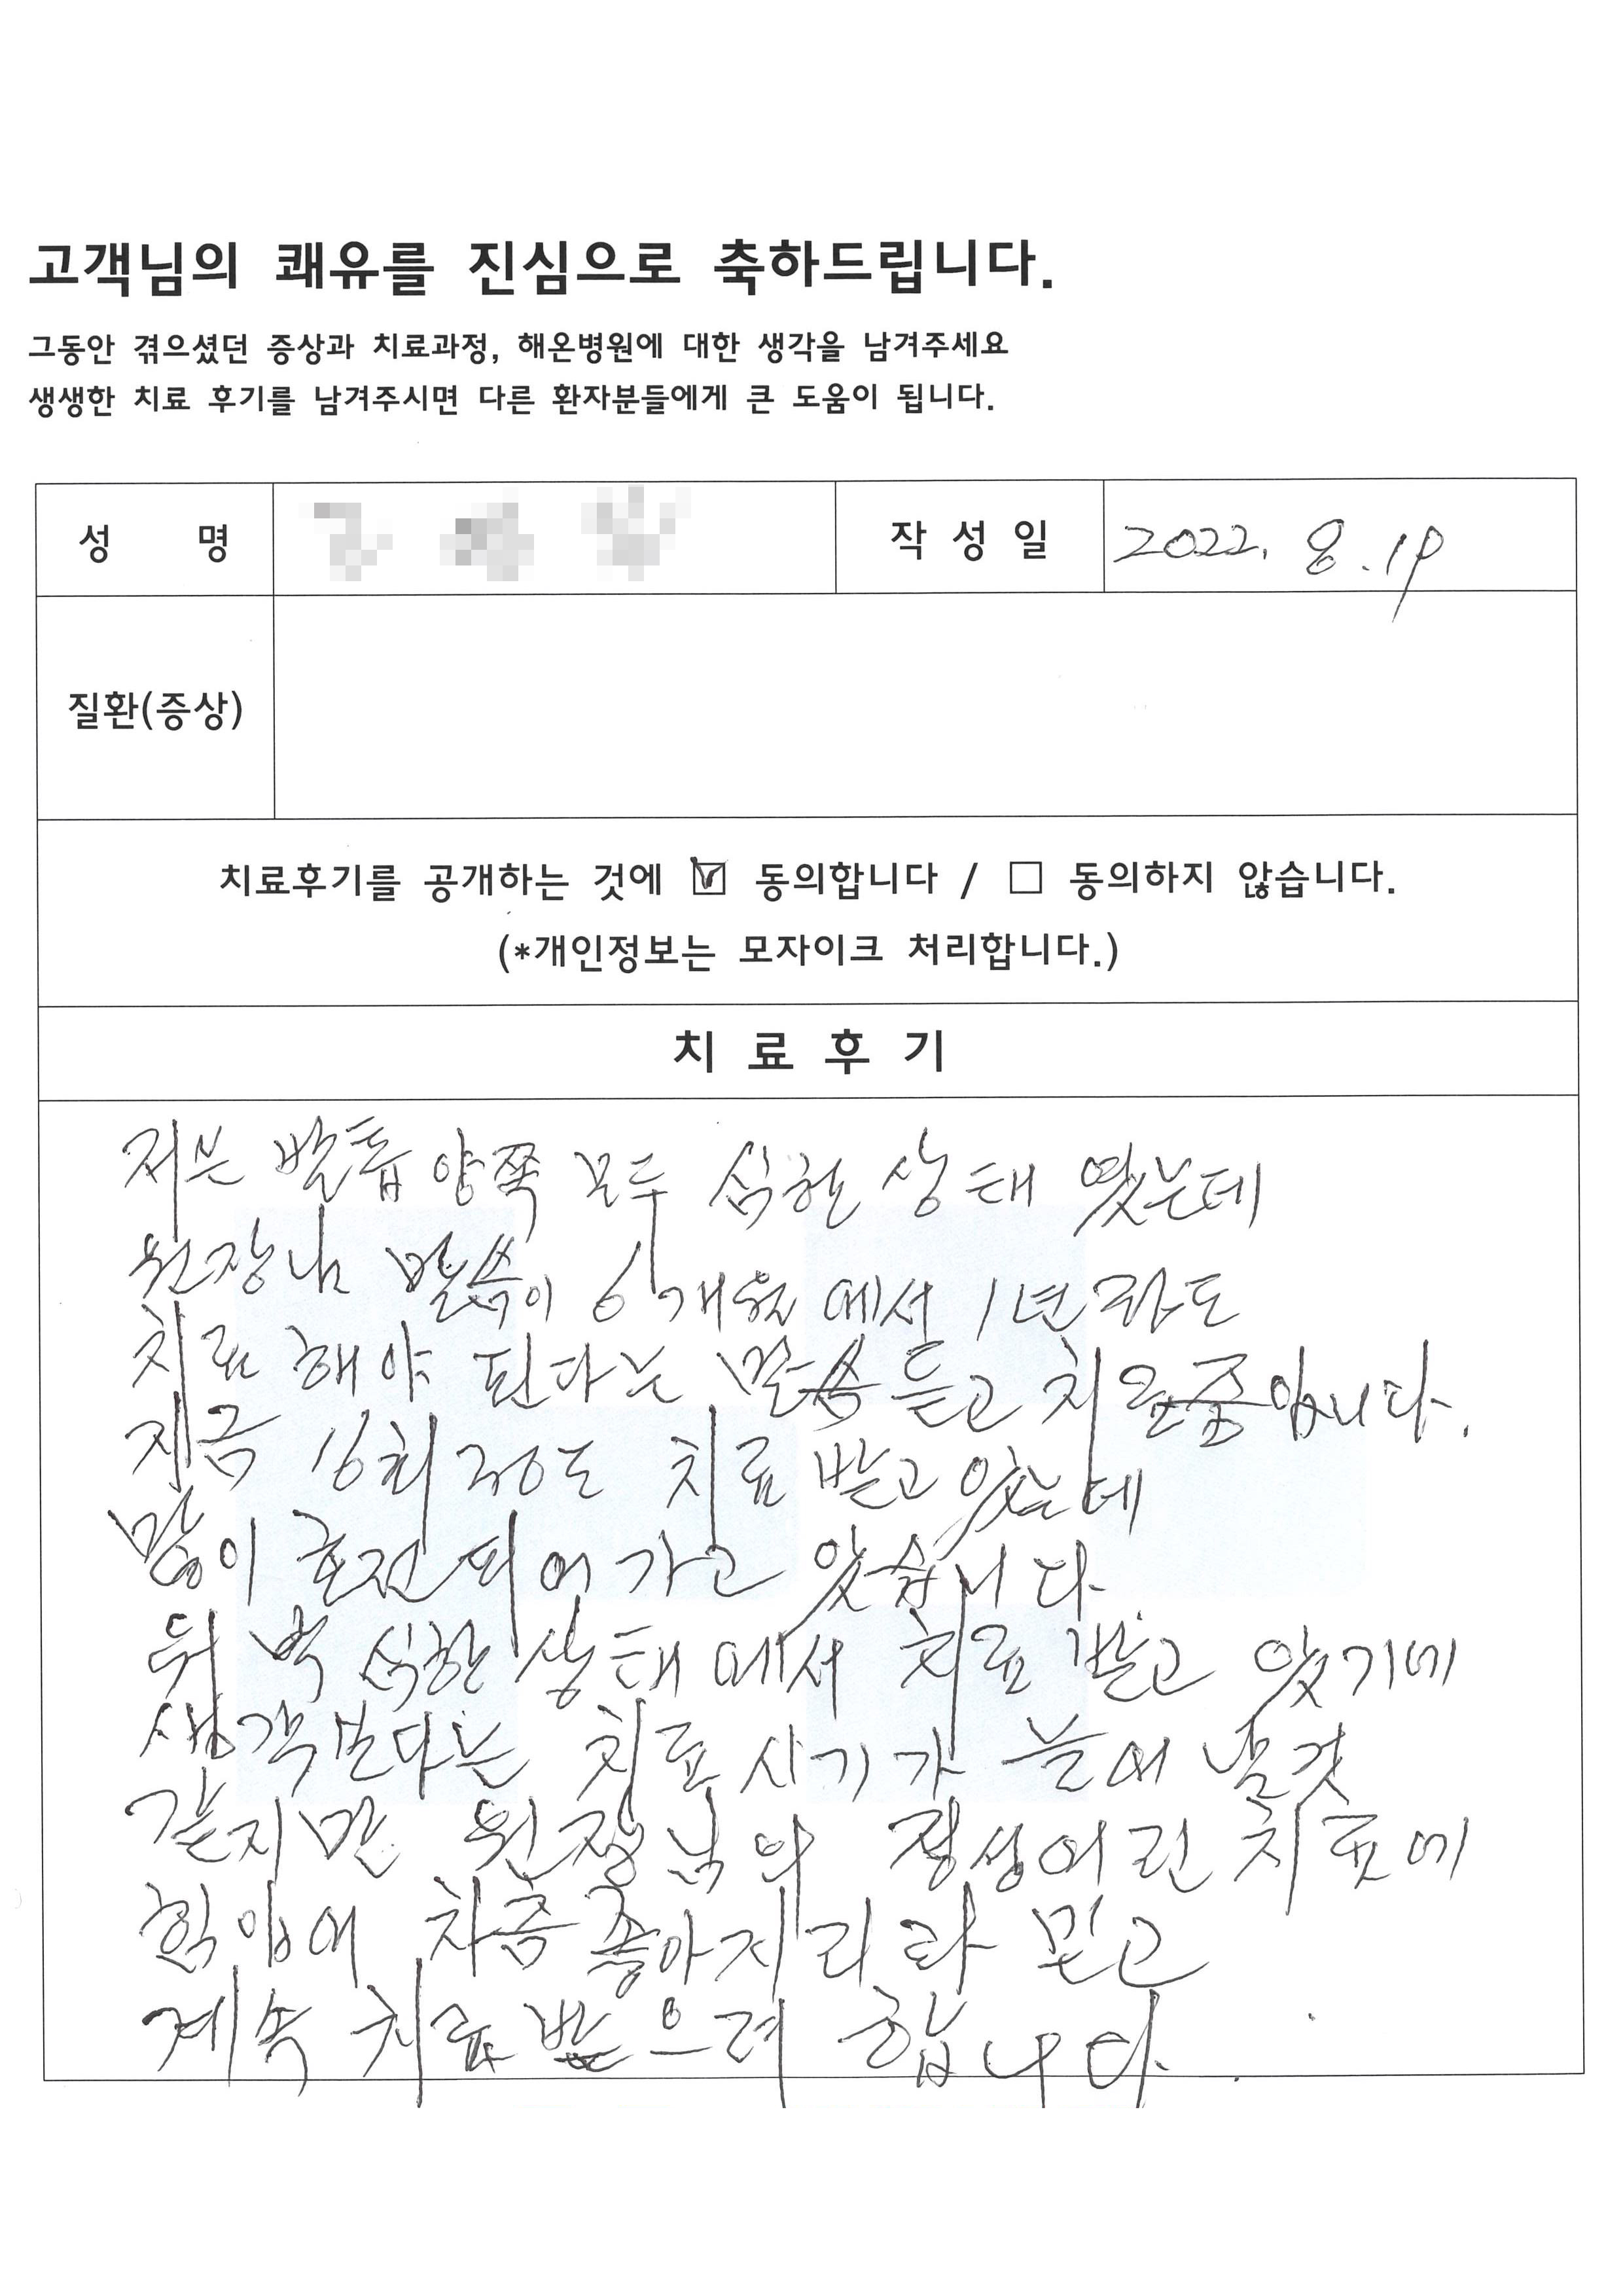 고객님의 쾌유를 진심으로 축하드립니다.
그동안 겪으셨던 증상과 치료과정, 해온병원에 대한 생각을 남겨주세요
생생한 치료 후기를 남겨주시면 다른 환자분들에게 큰 도움이 됩니다.
성 명
작 성 일 2022. 8. 19
질환(증상)
치료후기를 공개하는 것에 ☑ 동의합니다 / ☐ 동의하지 않습니다.
(*개인정보는 모자이크 처리합니다.)
치 료 후 기
저는 발톱 양쪽 모두 심한 상태 였는데
원장님 말씀이 6개월 에서 1년 정도
치료 해야 된다는 말씀 듣고 치료중입니다.
지금 16회 정도 치료 받고 있는데
많이 호전되어 가고 있습니다.
워낙 심한 상태 에서 치료 받고 있기에
생각보다는 치료 시기가 늘어 날것
같지만 원장님의 정성어린 치료에
힘입어 차츰 좋아지리라 믿고
계속 치료 받으려 합니다.